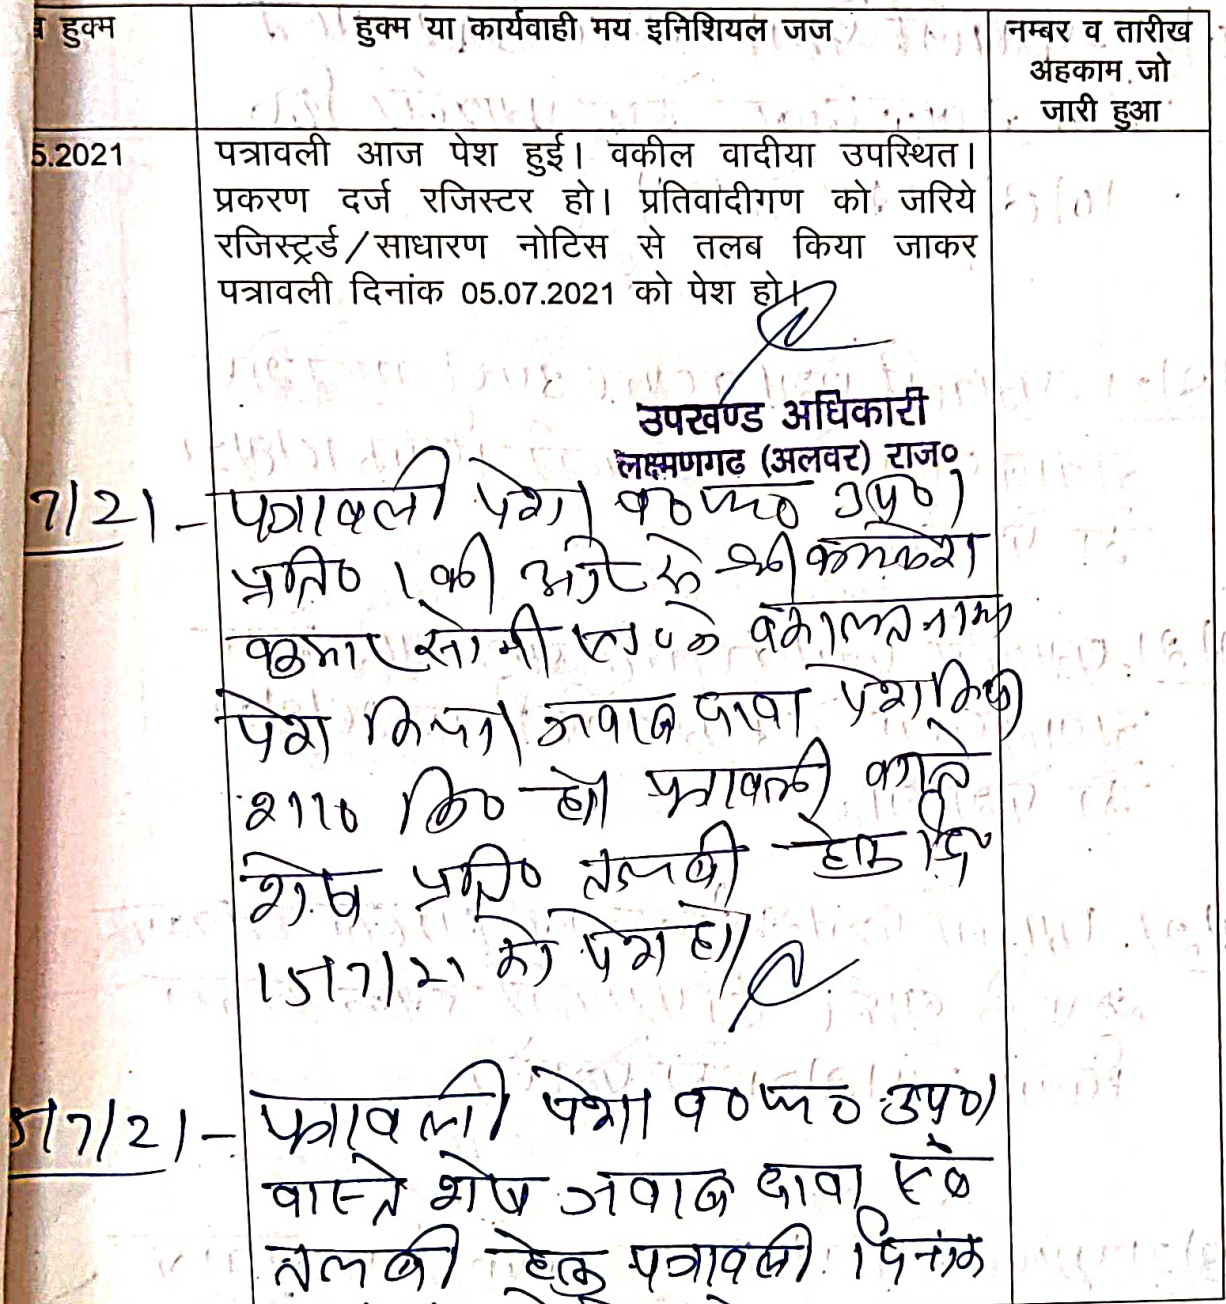 हुक्म
हुक्म या कार्यवाही मय इनिशियल जज
नम्बर व तारीख
अहकाम जो
जारी हुआ
5.2021
पत्रावली आज पेश हुई। वकील वादीया उपस्थित।
प्रकरण दर्ज रजिस्टर हो। प्रतिवादीगण को जरिये
रजिस्ट्रर्ड/साधारण नोटिस से तलब किया जाकर
पत्रावली दिनांक 05.07.2021 को पेश हो।
उपखण्ड अधिकारी
लक्ष्मणगढ (अलवर) राज०
7/21 - पत्रावली पेश। व० फ० उप०।
प्रति० 1 की ओर से श्री कमलेश
कुमार सोनी एड०के वकालतनामा
पेश किया। जवाब दावा पेश किया
शा० मि० हो। पत्रावली वास्ते
शेष प्रति० तलबी हेतु दि०
15/7/21 को पेश हो।
5/7/21 - पत्रावली पेश। व० फ० उप०।
वास्ते शेष जवाब दावा एवं
तलबी हेतु पत्रावली दिनांक